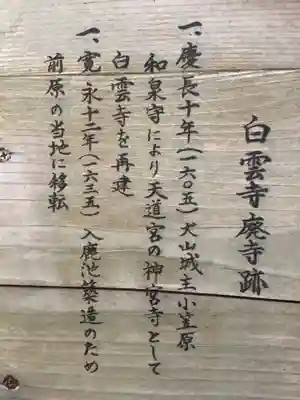 白雲寺廃寺跡
一、慶長十年(一六〇五)犬山城主小笠原
和泉守により天道宮の神宮寺として
白雲寺を再建
一、寛永十二年(一六三五)入鹿池築造のため
前原の当地に移転